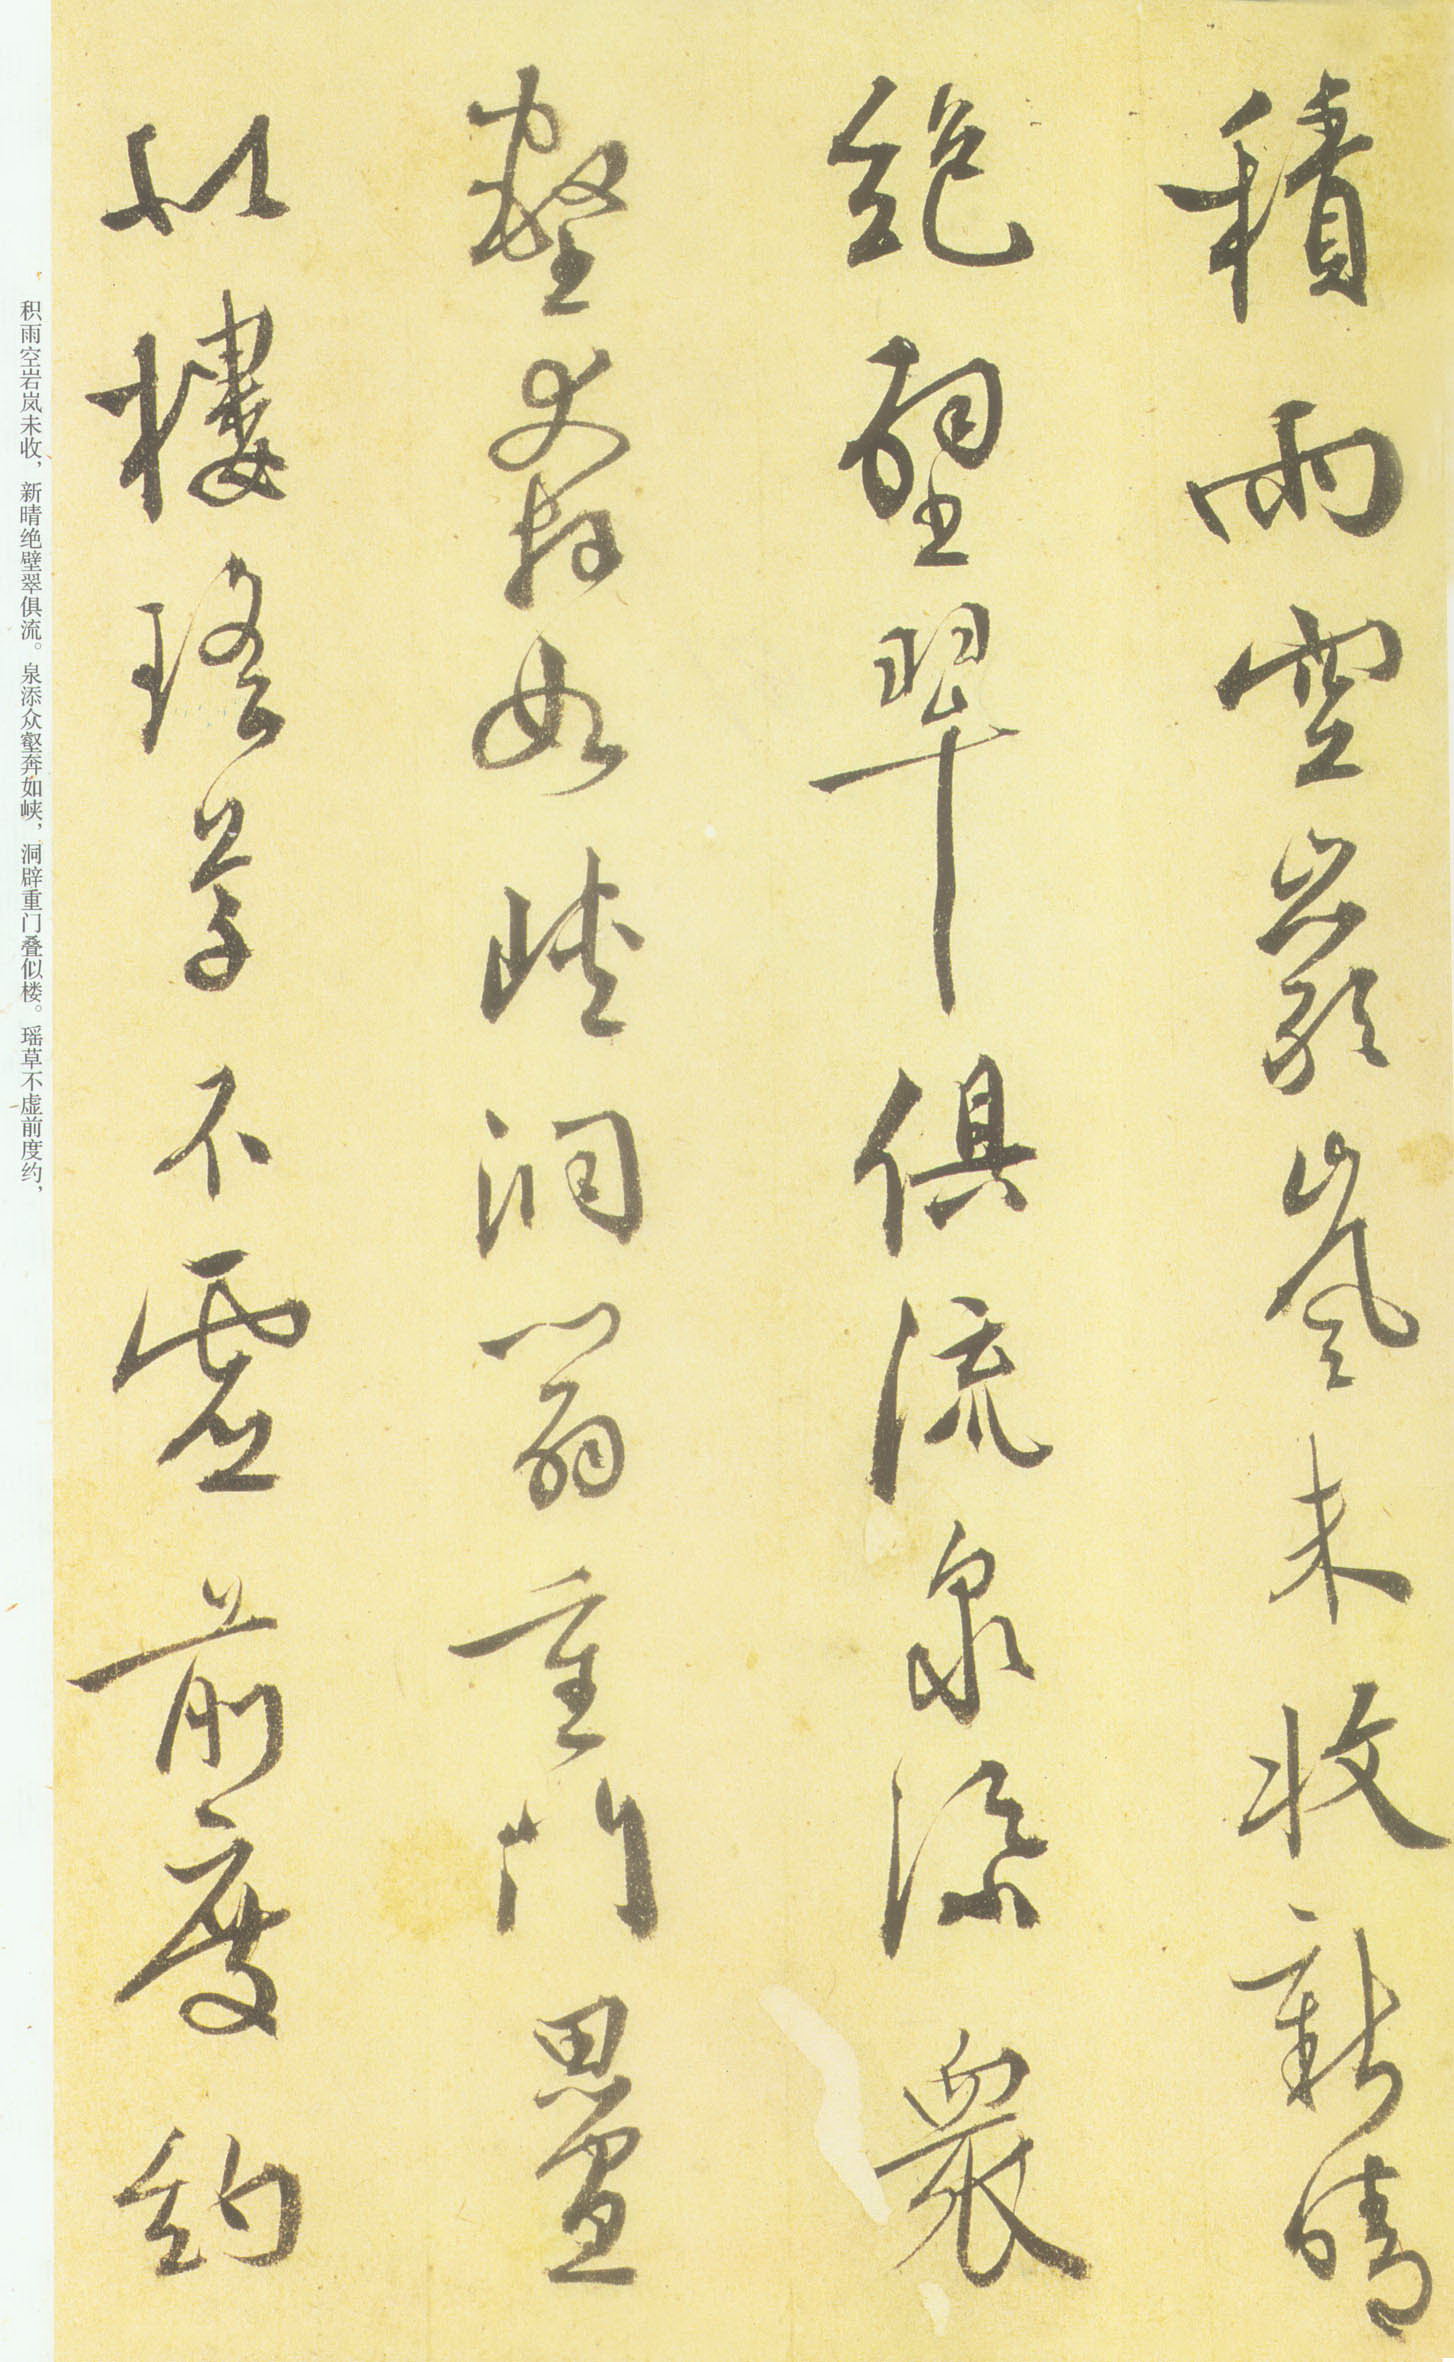 積雨空巖嵐未收新晴
絕壁翠俱流泉添衆
壑奔如峽洞闢重門疊
似樓瑤草不虛前度約
积雨空岩岚未收，新晴绝壁翠俱流。泉添众壑奔如峡，洞辟重门叠似楼。瑶草不虚前度约，